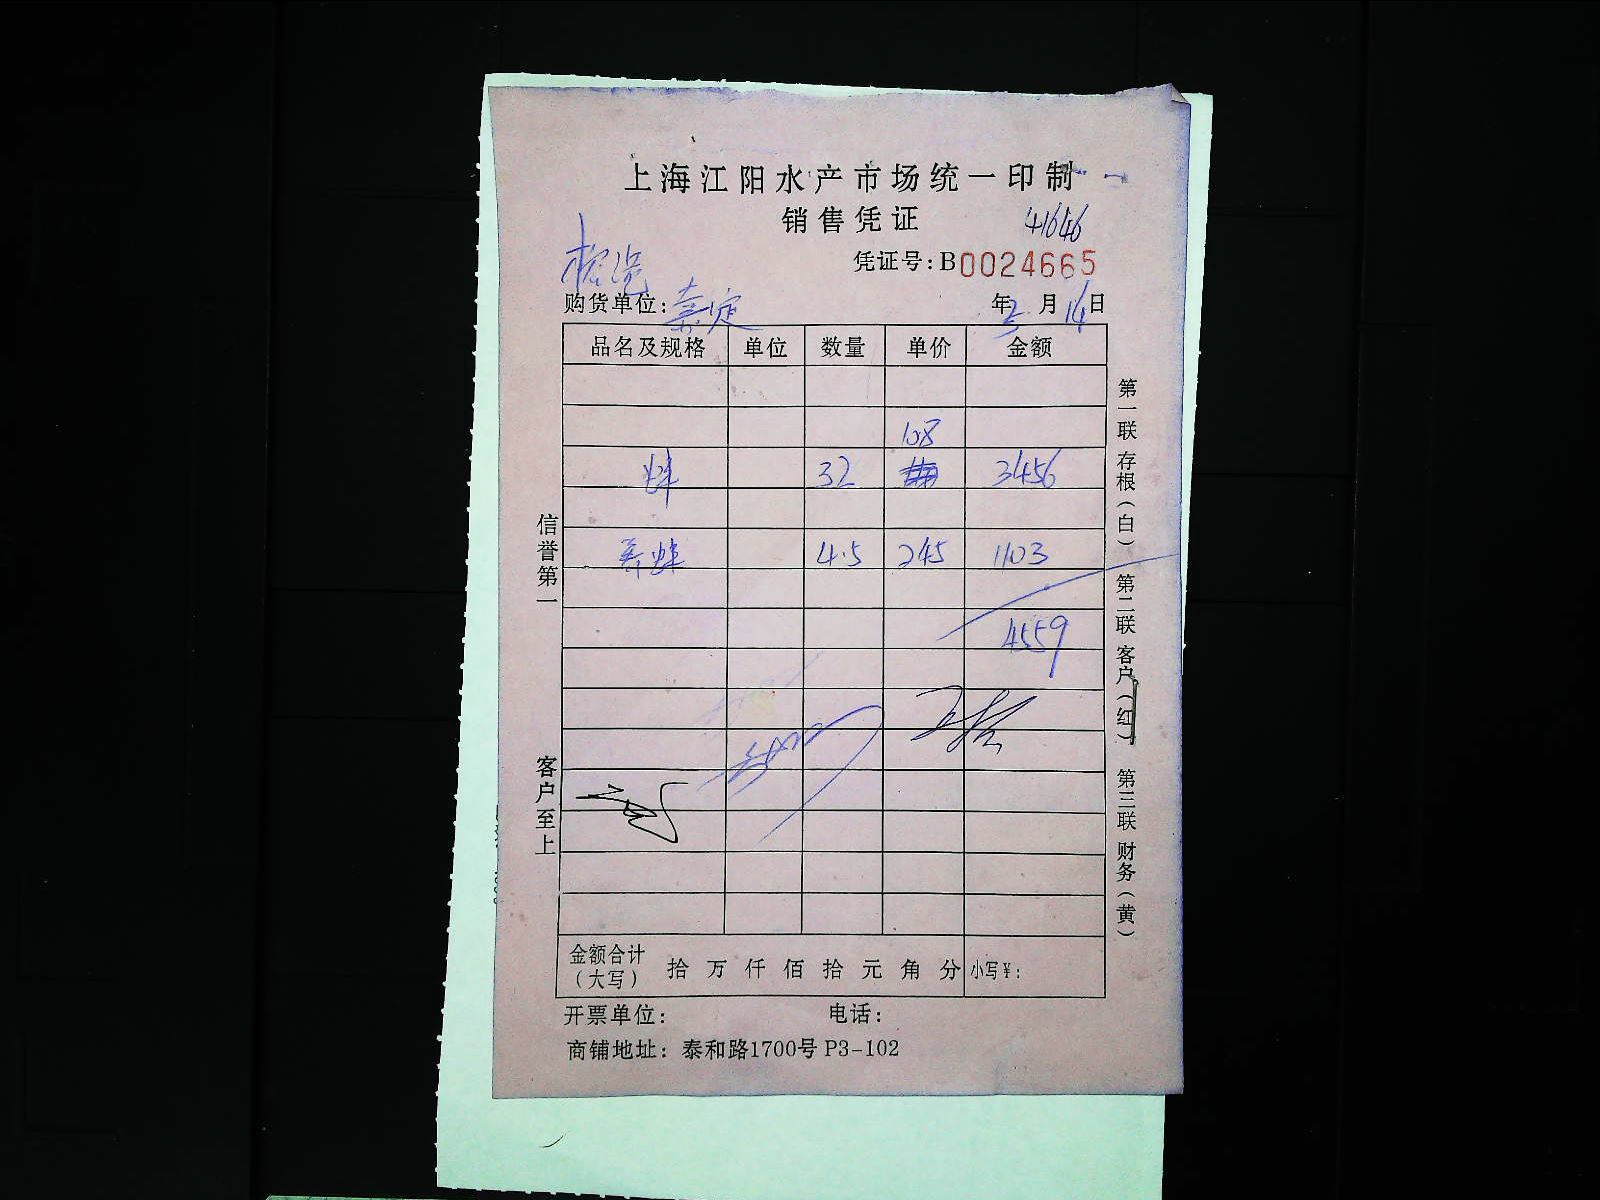 上海江阳水产市场统一印制
销售凭证
41646
凭证号:B0024665
购货单位:嘉定
年3月14日
品名及规格 单位 数量 单价 金额
108
蚌 32 3456
4.5 245 1103
4559
信誉第一
客户至上
第一联 存根（白） 第二联 客户（红） 第三联 财务（黄）
金额合计（大写） 拾 万 仟 佰 拾 元 角 分 小写¥:
开票单位: 电话:
商铺地址: 泰和路1700号 P3-102